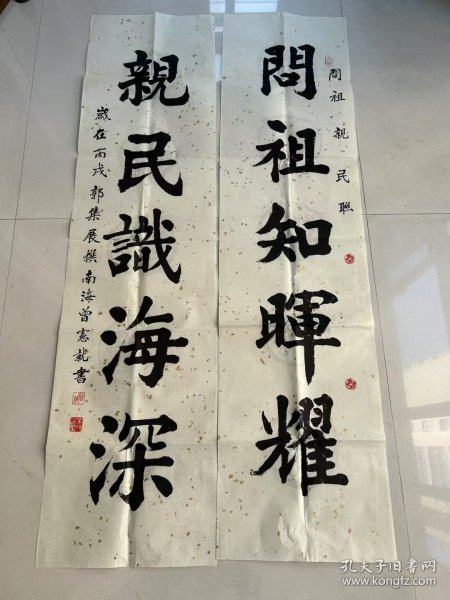 問祖親民聯
問祖知暉耀
親民識海深
歲在丙戌郭集展撰南海曾憲龍書
孔夫子旧书网
www.kongfz.com